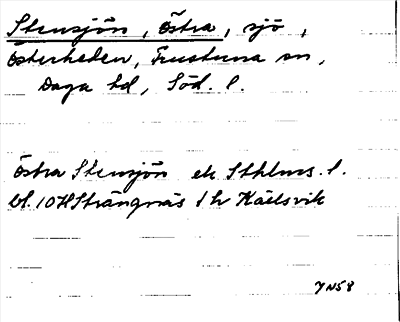 Stensjön, Östra, sjö,
Österheden, Frustuna sn,
Daga hd, Söd. l.
Östra Stensjön ek Sthlms. l.
bl. 10H Strängnäs
YN58